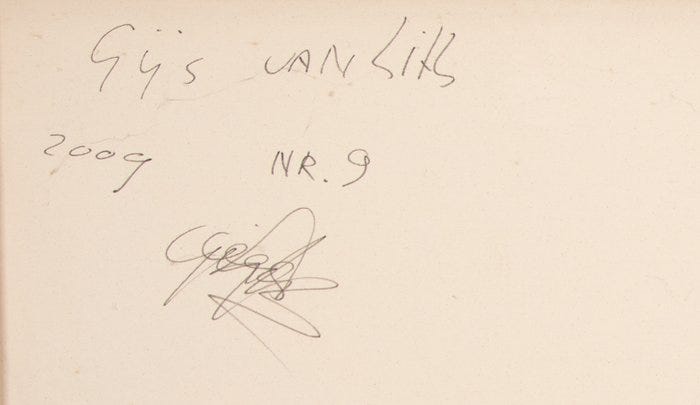 Gijs VAN Lith
2009 NR. 9